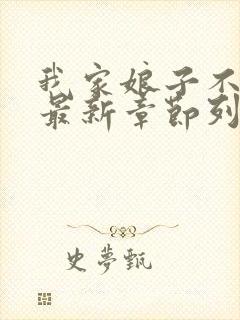 我家娘子不
最新章節列
史夢甄